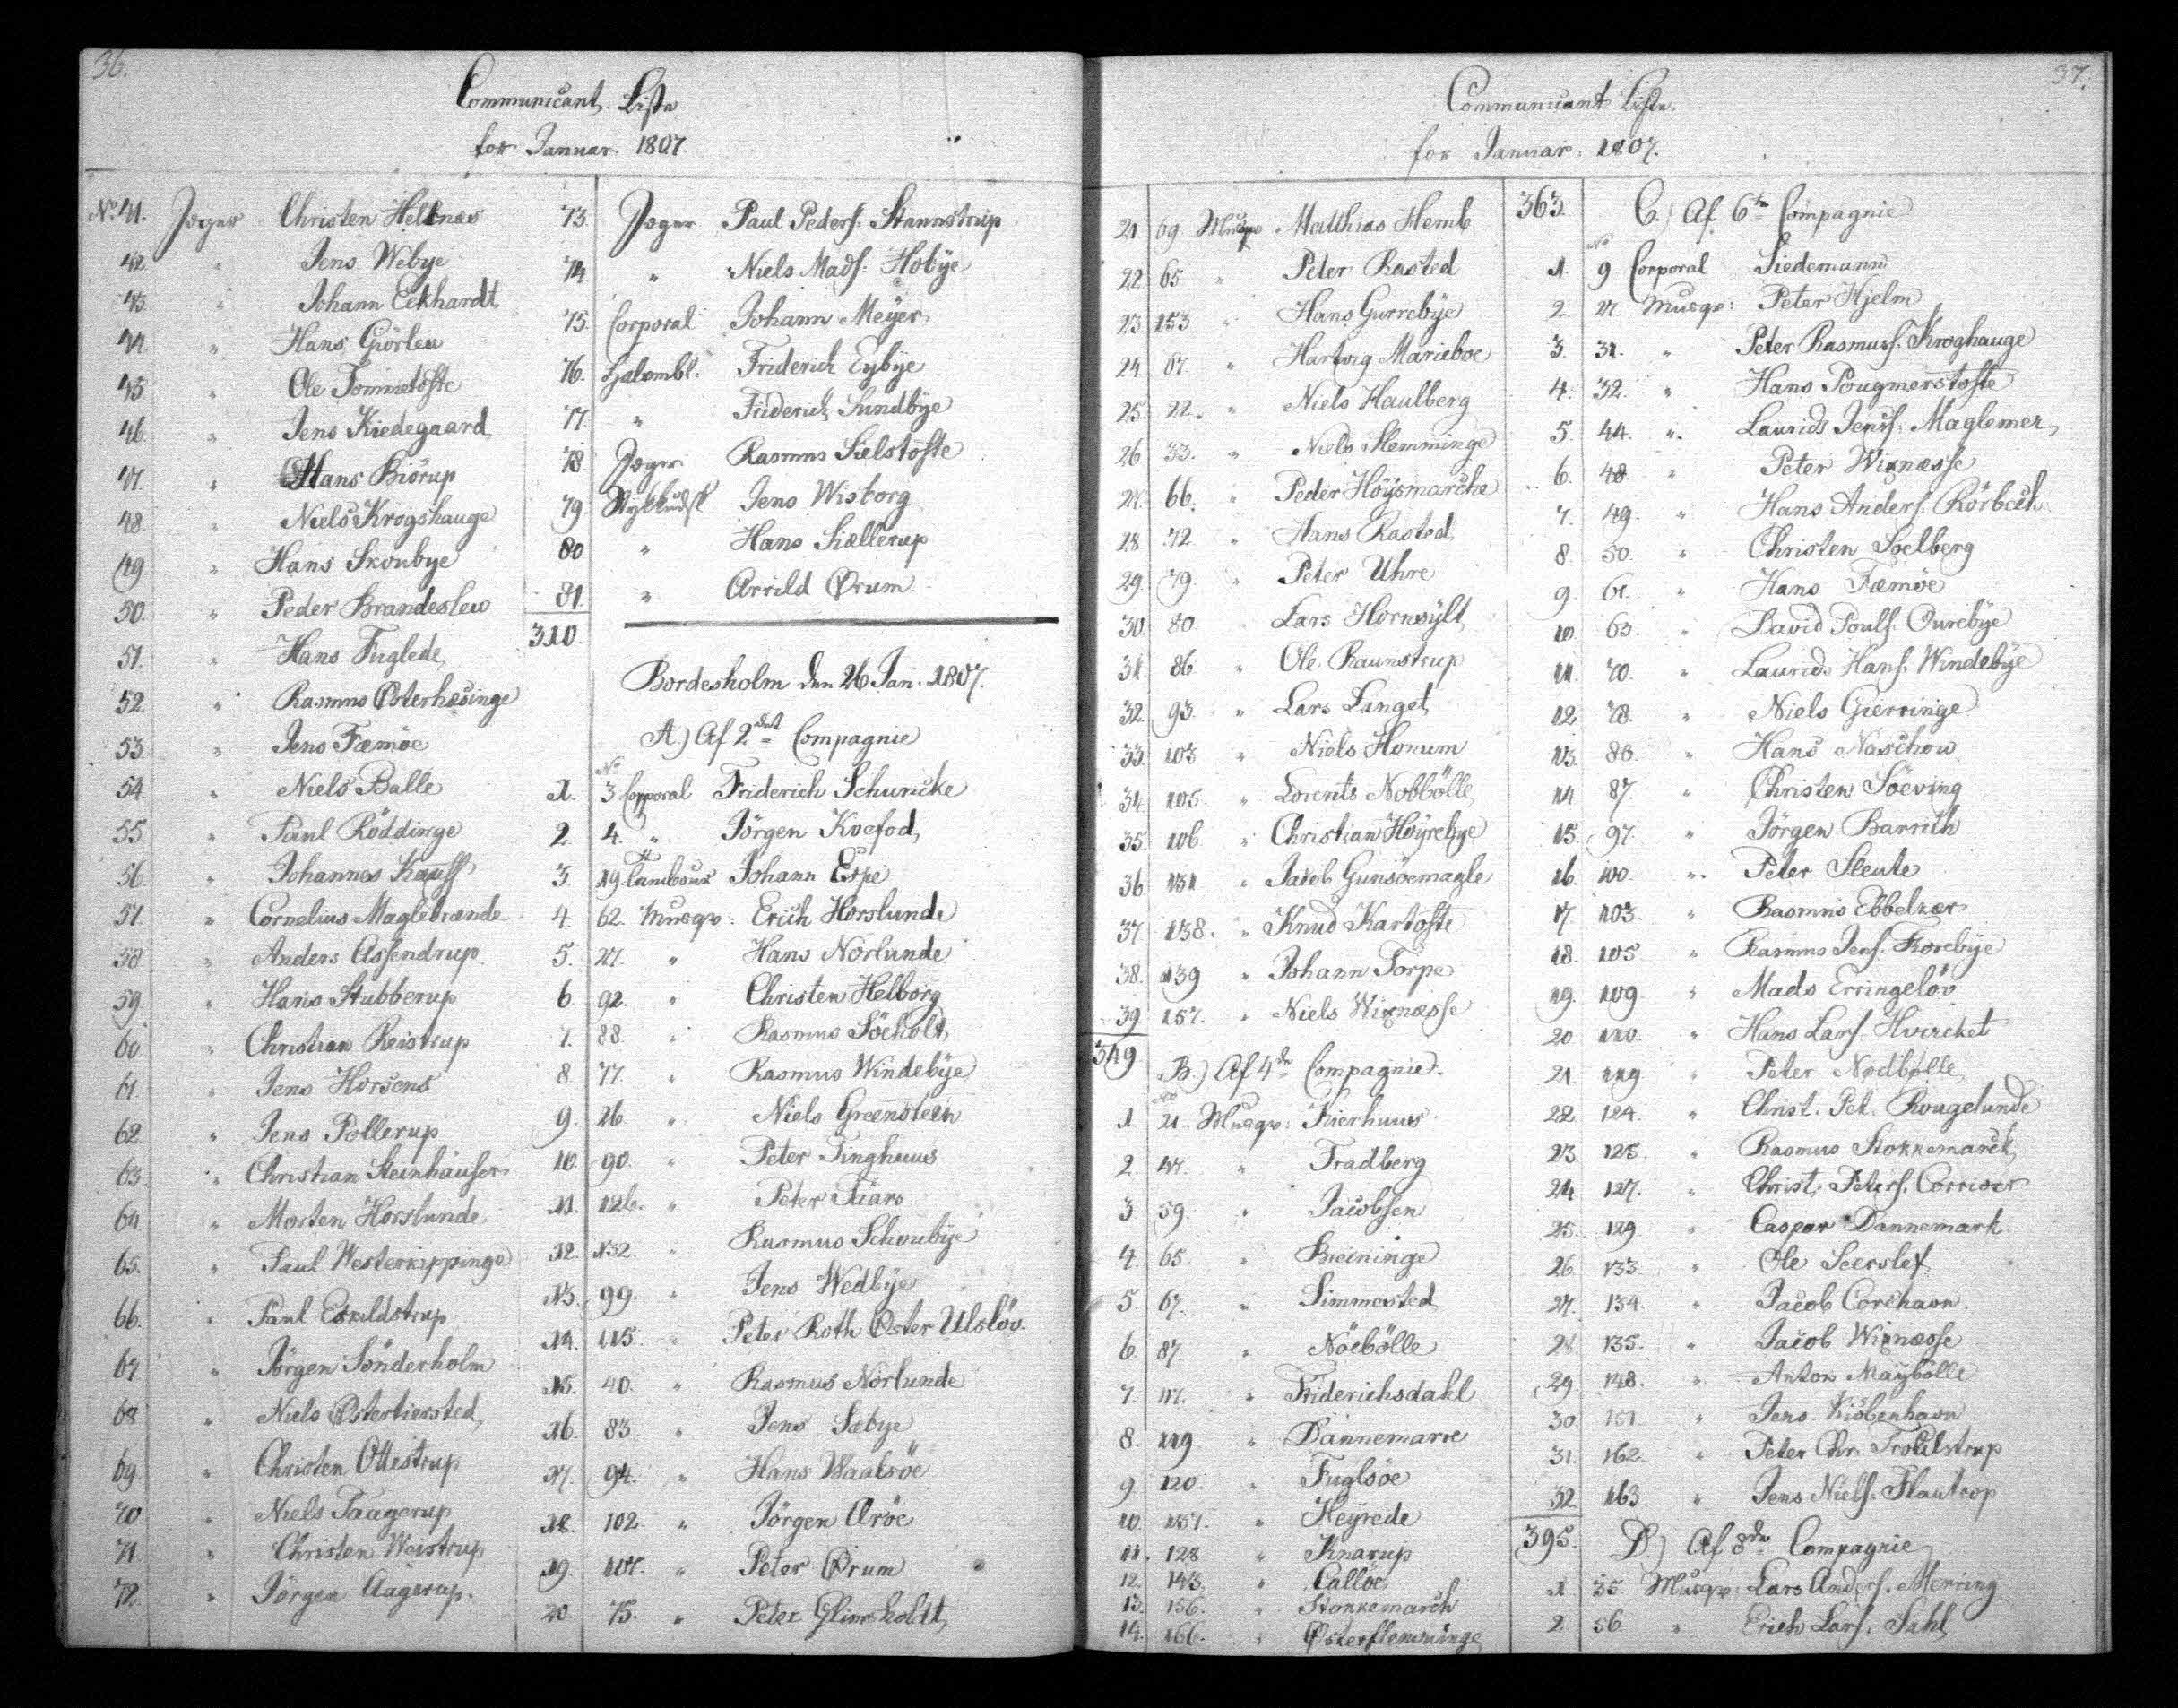 36.
Communicant Liste
for Januar 1807.
No. 41. Jæger Christen Hellnæs
42 " Jens Webye
43. " Johann Eckhardt
44 " Hans Giörlev
45 " Ole Tommetofte
46. " Jens Kiedegaard
47. " Hans Biörup
48 " Niels Krogshauge
49 " Hans Skoubye
50. " Peder Brandeslew
51. " Hans Fuglede
52 " Rasmus Østerhæsinge
53. " Jens Fæmöe
54. " Niels Balle
55 " Paul Röddinge
56 " Johannes
57 " Cornelius Maglebrænde
58 " Anders Assendrup
59. " Hans Stubberup
60 " Christian Reistrup
61. " Jens Horsens
62 " Jens Pollerup
63. " Christian Steinhäuser
64 " Morten Horslunde
65. " Paul Westerkippinge
66. " Paul Eskildstrup
67 " Jörgen Sönderholm
68 " Niels Østertiersted
69. " Christen Ottestrup
70 " Niels Taagerup
71 " Christen Weistrup
72. " Jörgen Aagerup.
73. Jæger Paul Peders: Stannstrup
74 " Niels Mads: Hobÿe
75. Corporal Johann Meÿer
76. Halvmbl. Friderich Eybÿe
77. " Friderich Sundbÿe
78. Jæger Rasmus Sielstofte
79. Stykkudsk Jens Wistorg
80 " Hans Siællerup
81. " Arrild Ørum.
310.
Bordesholm den 26 Jan. 1807.
A) Af 2det Compagnie
No
1. 3 Corporal Friderich Schuricke
2 4. " Jörgen Koefod
3 19. Tambour Johann Espe
4 62 Musqv: Erich Horslunde
5. 27. " Hans Norlunde
6 92. " Christen Helborg
7. 88. " Rasmus Söeholt
8 77. " Rasmus Windebÿe
9. 26 " Niels Greenstein
10. 90. " Peter Tinghuus
11. 126. " Peter Taars
12. 132. " Rasmus Schoubÿe
13. 99. " Jens Wedbÿe
14. 115. " Peter Roth Øster Ulslöv.
15. 40. " Rasmus Nörlunde
16. 83. " Jens Sæbye
17. 94. " Hans Waalsöe
18. 102 " Jörgen Æröe
19. 107. " Peter Ørum
20. 75. " Peter Glimholtt
37.
Communicant Liste
for Januar. 1807.
21 69 Musqv Matthias Hemb
22. 65 " Peter Rasted
23. 153 " Hans Gurrebÿe
24. 67. " Hartvig Marieboe
25. 22. " Niels Haulberg
26 33. " Niels Slemminge
27. 66. " Peder Höÿsmarche
28 72 " Hans Rasted
29. 79. " Peter Uhre
30. 80 " Lars Hornsÿlt
31. 86 " Ole Raunstrup
32. 93. " Lars Langet
33. 103 " Niels Honum
34. 105. " Lorents Nobbölle
35. 106. " Christian Höÿrebye
36. 131 " Jacob Gunsöemagle
37. 138. " Knud Kartofte
38. 139 " Johann Torpe
39 157. " Niels Wixnæsse
349
B.) Af 4de Compagnie.
No
1 21. Musqv: Kierhuus
2. 47. " Fradberg
3 59. " Jacobsen
4. 65 " Breininge
5. 67. " Simmested
6. 87. " Nöebölle
7. 117. " Friderichsdahl
8. 119 " Dannemarre
9 120. " Fuglsöe
10. 137. " Heÿrede
11. 128 " Knarup
12. 143. " Callöe
13. 156. " Stokkemarch
14. 166. " Østerslemminge
363. C.) Af 6te Compagnie
No
1. 9 Corporal Siedemann
2. 27. Musqv: Peter Hjelm
3. 31. " Peter Rasmuss. Kroghauge
4. 32. " Hans Pougmerstofte
5. 44. " Laurids Jenss: Maglemer
6. 48 " Peter Wixnæsse
7. 49. " Hans Anders. Rörbæck
8 50. " Christen Soelberg
9. 61. " Hans Fæmöe
10. 63. " David Pouls. Ourebÿe
11. 70. " Laurids Hans. Windebÿe
12. 78. " Niels Gierringe
13. 86. " Hans Naschou
14 87. " Christen Söeving
15. 97. " Jörgen Barrith
16. 100. " Peter Sleute
17. 103. " Rasmus Ebbelkær
18. 105 " Rasmus Jens. Korebÿe
19. 109. " Mads Erringelöv
20 110. " Hans Lars. Hvircket
21. 119. " Peter Nødbølle
22 124. " Christ. Pet. Rougelunde
23 125. " Rasmus Stokkemarck
24 127. " Christ. Peters. Corriser
25. 129 " Caspar Dannemark
26 133. " Ole Seerslef
27. 134. " Jacob Corshavn.
28 135. " Jacob Wixnæsse
29 148. " Anton Maÿbölle
30. 151 " Jens Kiöbenhavn
31. 162. " Peter Chr. Troelstrup
32 163 " Jens Niels. Flautrop
395. D) Af 8de Compagnie
1 35 Musqv: Lars Anders. Merring
2. 56. " Erich Lars. Sahl